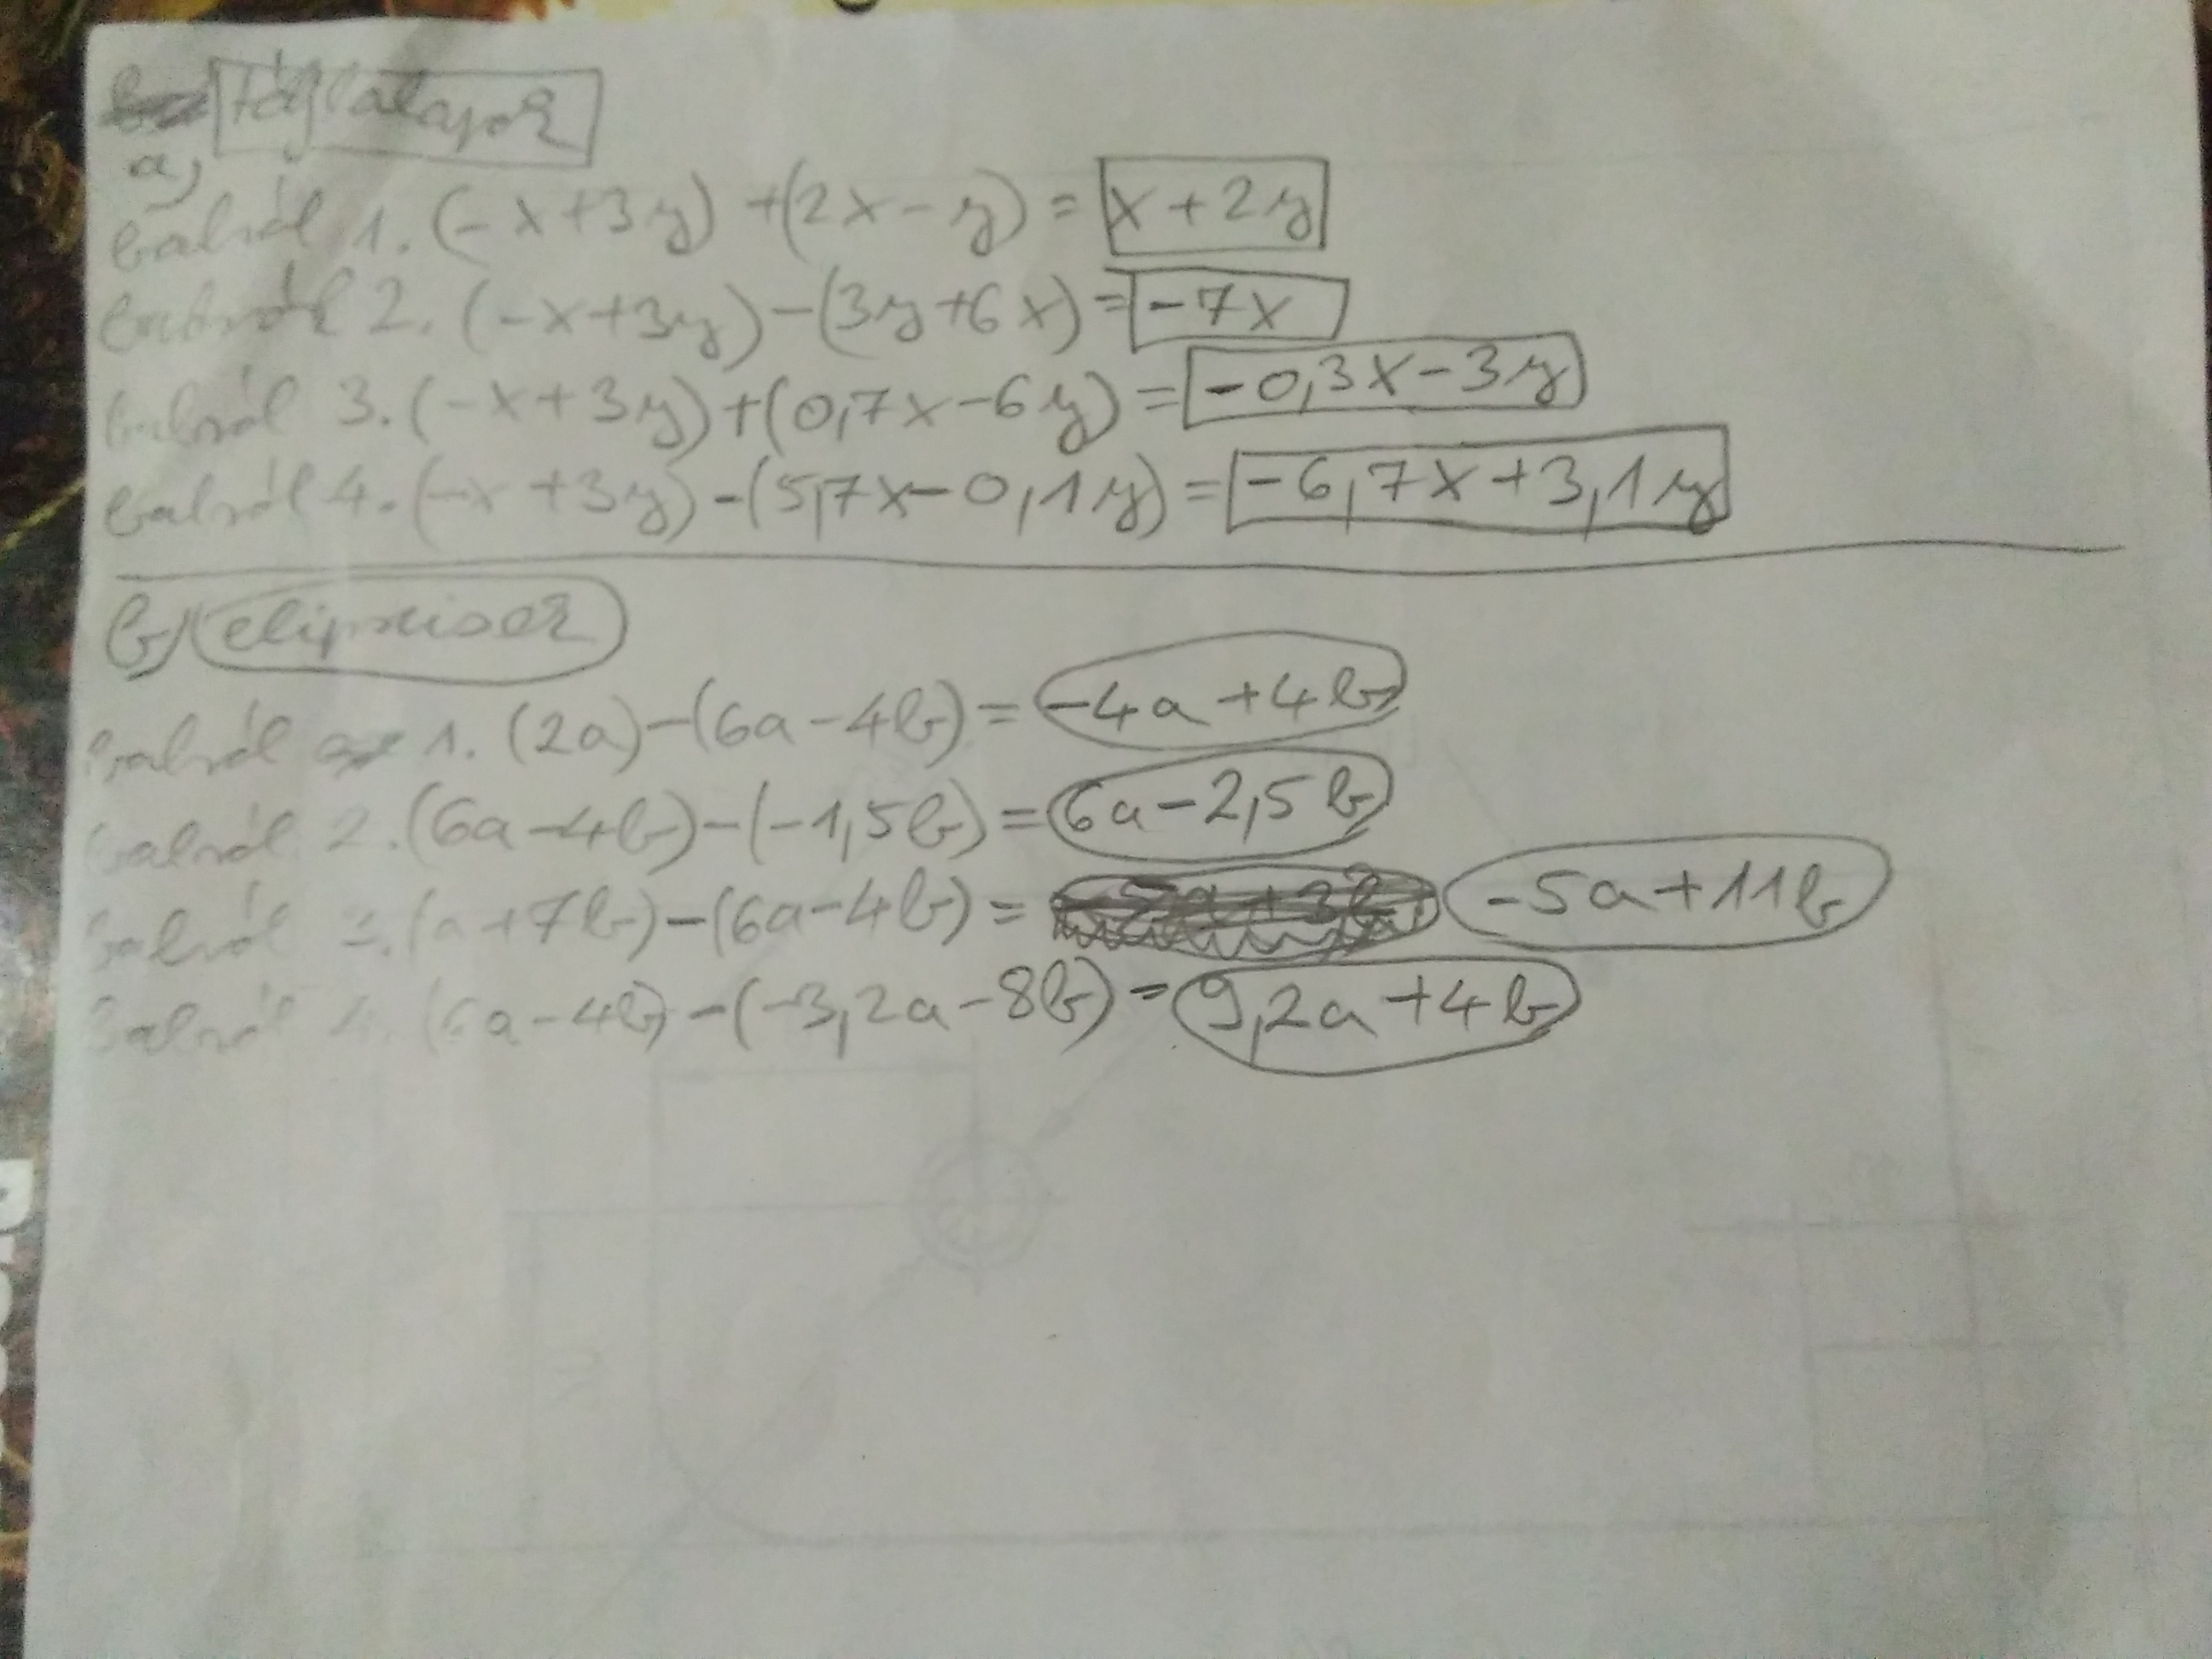 a,
téglalapok
balról 1. (-x+3y)+(2x-y)= x+2y
balról 2. (-x+3y)-(3y+6x)= -7x
balról 3. (-x+3y)+(0,7x-6y)= -0,3x-3y
balról 4. (-x+3y)-(5,7x-0,1y)= -6,7x+3,1y
b, elipszisek
balról 1. (2a)-(6a-4b)= -4a+4b
balról 2. (6a-4b)-(-1,5b)= 6a-2,5b
balról 3. (a+7b)-(6a-4b)= -5a+11b
balról 4. (6a-4b)-(-3,2a-8b)= 9,2a+4b